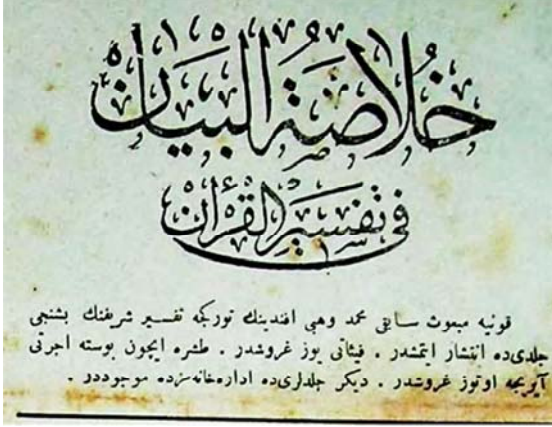 خُلَاصَةُ البَيَانِ
فِي تَفْسِيرِ القُرْآنِ
قونيه مبعوث سابقى محمد وهبى افندينك توركجه تفسير شريفنك بشنجى
جلدى‌ده انتشار ايتمشدر . فيئاتى يوز غروشدر . طشره ايچون پوسته اجرتى
آيريجه اوتوز غروشدر . ديكر جلدلرى‌ده اداره‌خانه‌مزده موجوددر .